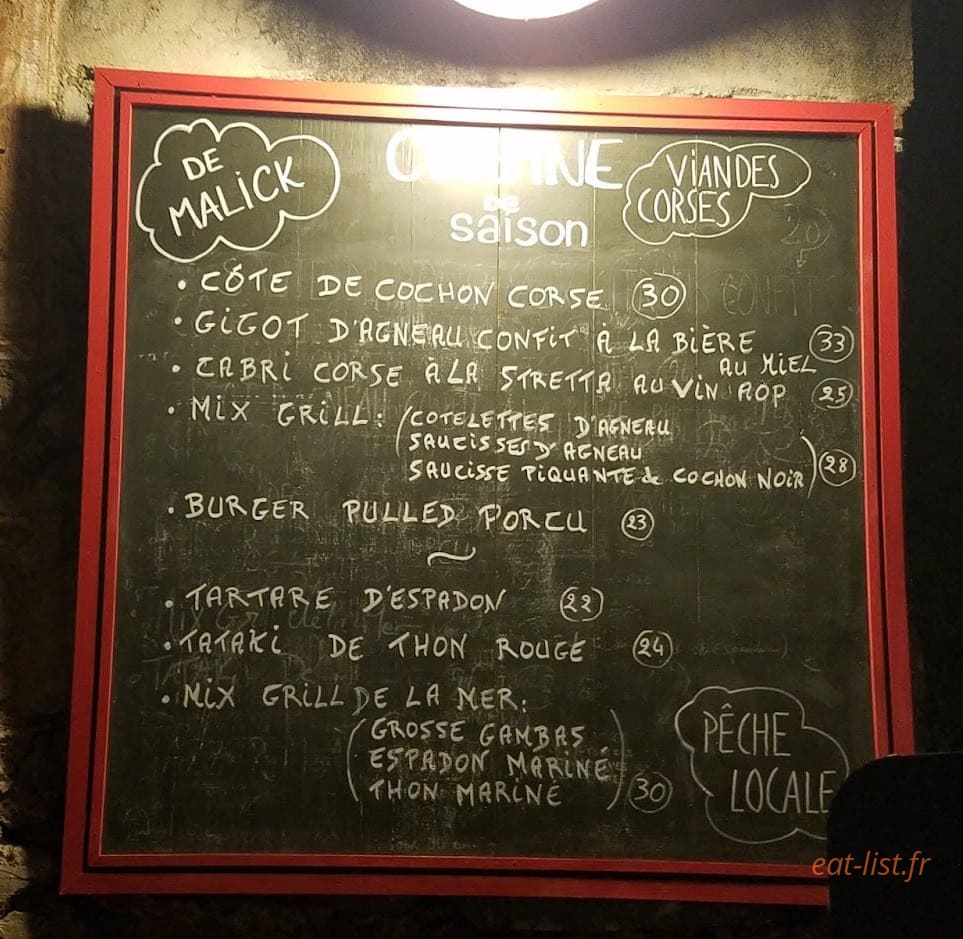 DE
MALiCK
CUISINE
DE
saison
ViANDES
CORSES
• CÔTE DE COCHON CORSE 30
• GiGOT D'AGNEAU CONFiT À LA BiÈRE 33
AU MiEL
• CABRi CORSE À LA STRETTA AU ViN AOP 25
• MiX GRiLL: (COTELETTES D'AGNEAU
SAUCISSES D'AGNEAU
SAUCISSE PIQUANTE de COCHON NOiR) 28
• BURGER PULLED PORCU 23
~
• TARTARE D'ESPADON 22
• TATAKi DE THON ROUGE 24
• MiX GRiLL DE LA MER:
(GROSSE GAMBAS
ESPADON MARINÉ
THON MARINÉ) 30
PÊCHE
LOCALE
eat-list.fr